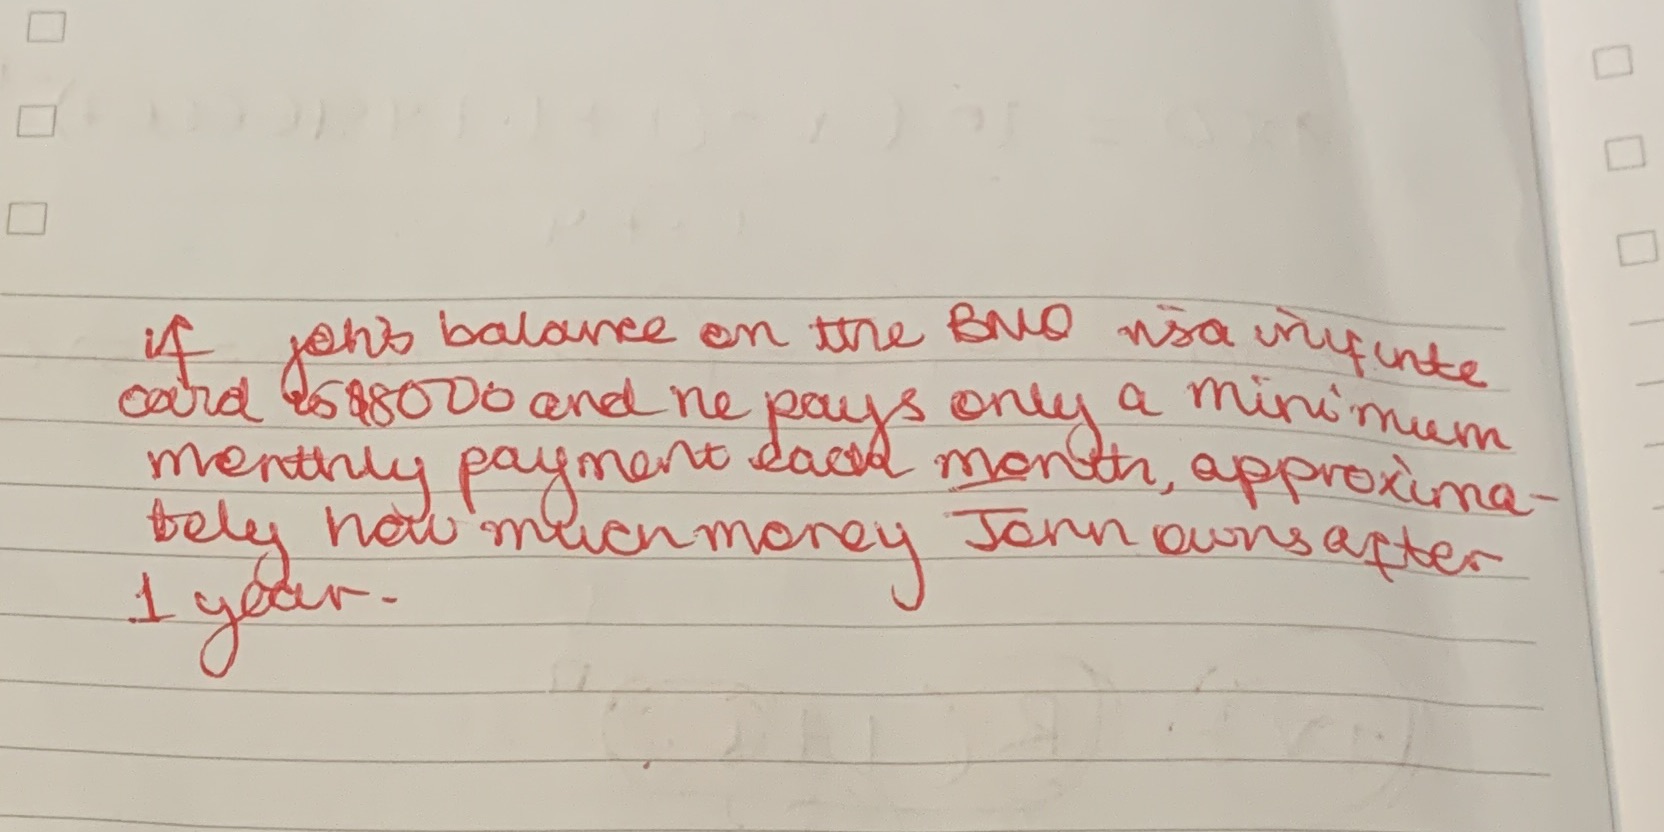 if john's balance on the BMO visa infinite
card is $8000 and he pays only a minimum
monthly payment each month, approxima-
tely how much money John owns after
1 year.